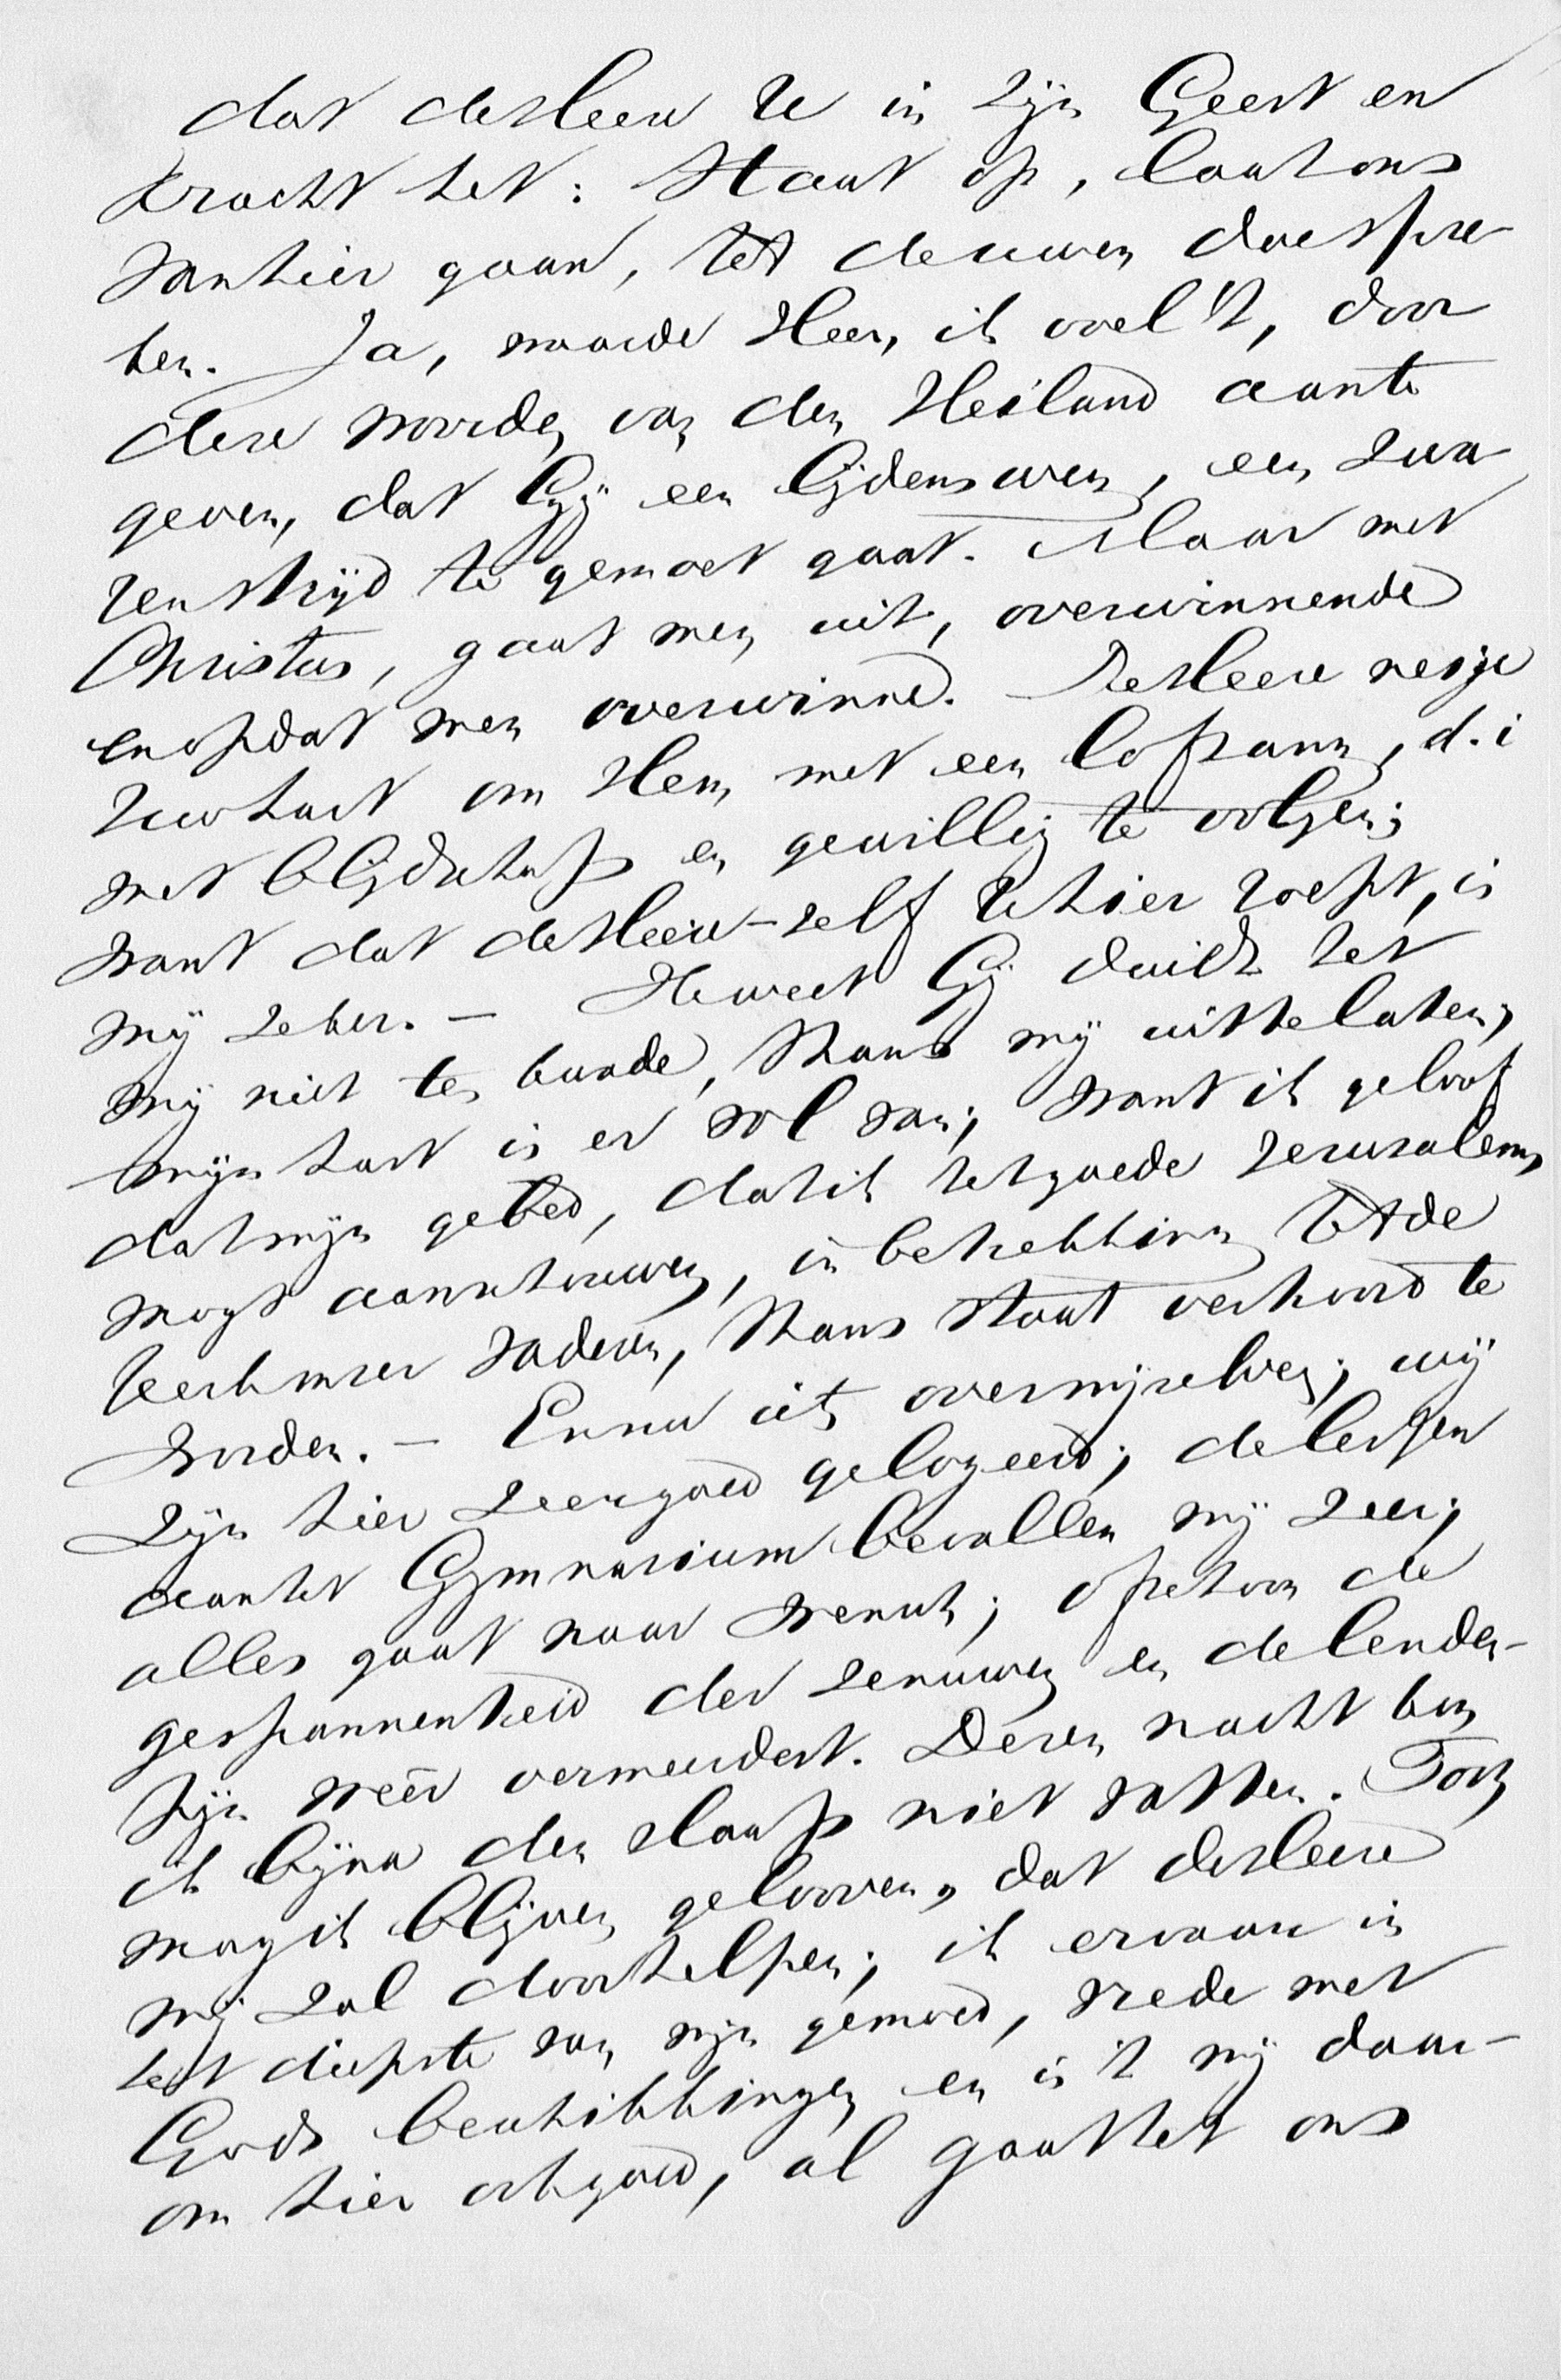 dat de Heere U in Zijn Geest en
kracht het: Staat op, laat ons
van hier gaan, tot de uwen doe spre-
ken. Ja, waarde Heer, ik voel 't, door
deze woorden van den Heiland aan te
geven, dat Gij een lijdensweg, een zwa-
ren strijd te gemoet gaat. Maar met
Christus, gaat men uit, overwinnende
en opdat men overwinne. De Heere neige
Uw hart om Hem met een lofpsalm, d.i
met blijdschap en gewillig te volgen;
want dat de Heere-zelf U hier roept, is
mij zeker. — Gij duidt het
mij niet ten kwade, thans mij uit te laten,
mijn hart is er vol van; want ik geloof
dat mijn gebed, dat ik het goede Jeruzalems
mogt aanschouwen, in betrekking tot de
kerk onzer vaderen, thans staat verhoord te
worden. — En nu iets over mijzelven; wij
zijn hier zeer goed gelogeerd; de lessen
aan het Gymnasium bevallen mij zeer;
alles gaat naar wensch; op de
gespannenheid der zenuwen en de lenden-
pijn weêr vermeerdert. Dezen nacht kon
ik bijna den slaap niet vatten. Toch
mag ik blijven gelooven, dat de Heere
mij zal doorhelpen; ik ervaar in
het diepste van mijn gemoed, vrede met
Gods beschikkingen en is 't mij daar-
om hier ook goed, al gaat het ons